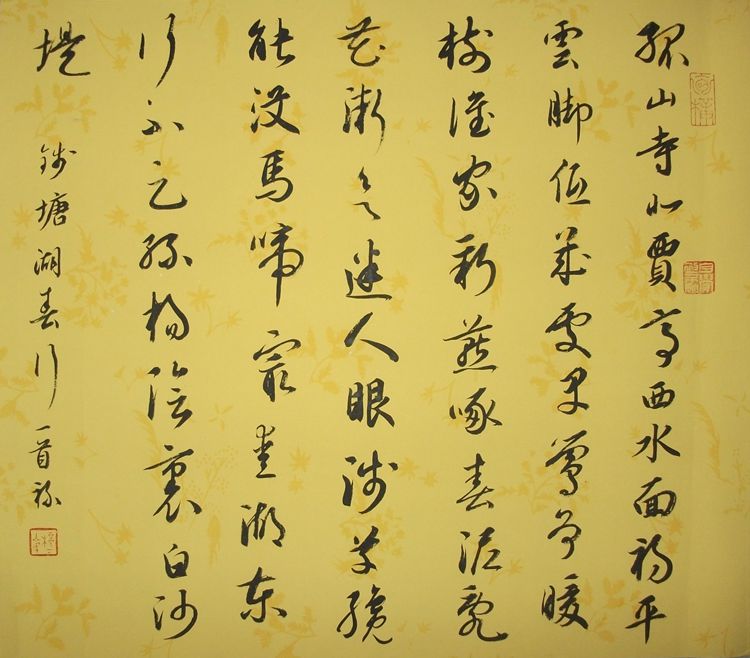 孤山寺北賈亭西水面初平
雲脚低幾處早鶯爭暖
樹誰家新燕啄春泥亂
花漸欲迷人眼淺草纔
能沒馬啼最愛湖東
行不足綠楊陰裏白沙
堤
錢塘湖春行一首